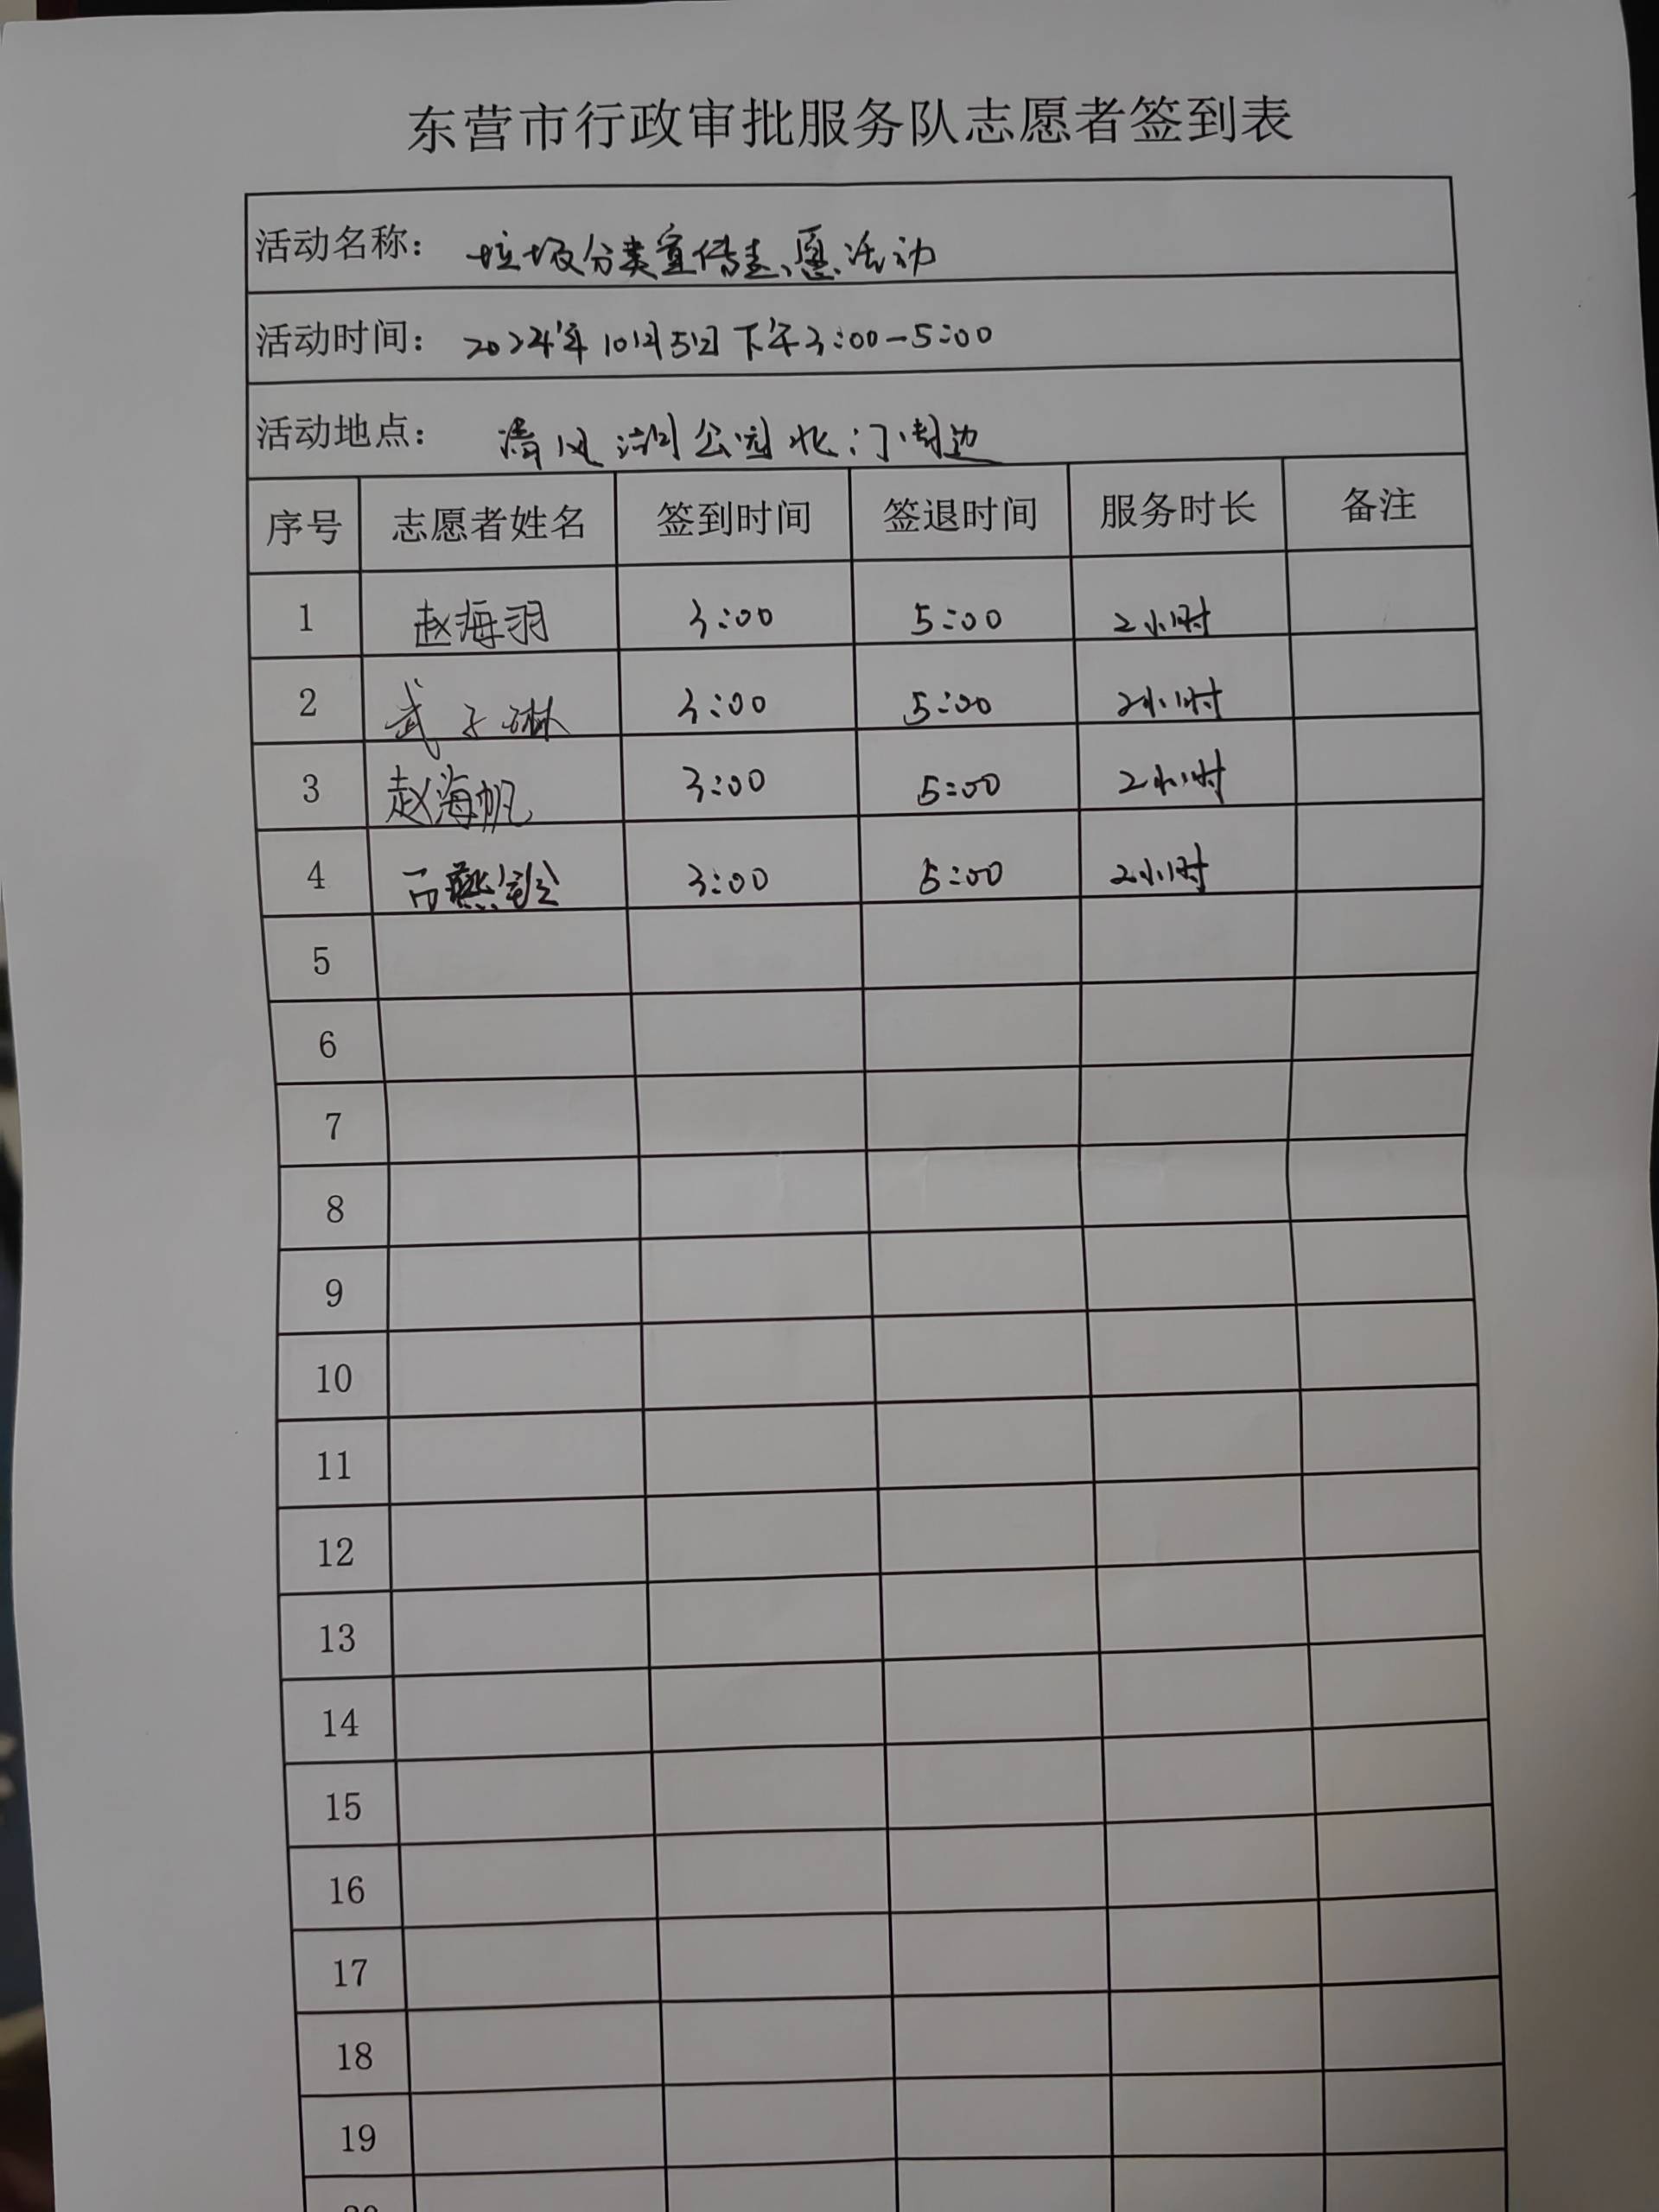 东营市行政审批服务队志愿者签到表
活动名称： 垃圾分类宣传志愿活动
活动时间： 2024年10月5日下午3:00-5:00
活动地点： 清风湖公园北门周边
序号 志愿者姓名 签到时间 签退时间 服务时长 备注
1 赵海羽 3:00 5:00 2小时
2 武子琳 3:00 5:00 2小时
3 赵海帆 3:00 5:00 2小时
4 3:00 5:00 2小时
5
6
7
8
9
10
11
12
13
14
15
16
17
18
19
20